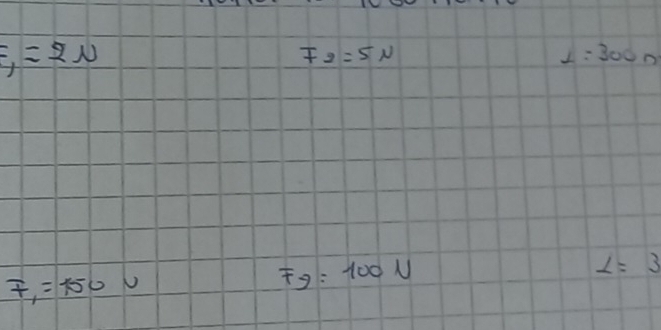 F₁ = 2 N F2 = 5 N L = 300
F₁ = 150 N F2 = 100 N L = 3